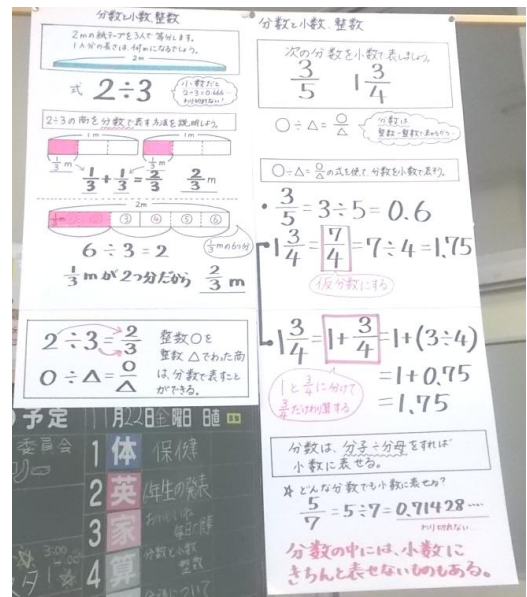 分数と小数、整数
2mの紙テープを3人で等分します。
1人分の長さは、何mになるでしょう。
2m
式 2÷3
小数だと
2÷3=0.666…
わりきれない!
2÷3の商を分数で表す方法を説明しよう。
1m 1m
1/3m 1/3m
1/3+1/3=2/3 2/3m
2m
③ ④ ⑤ ⑥
6÷3=2
1/3mの6つ分
1/3mが2つ分だから 2/3m
2÷3=2/3
○÷△=○/△
整数○を
整数△でわった商
は、分数で表すこと
ができる。
分数と小数、整数
次の分数を小数で表しましょう。
3/5 1 3/4
○÷△=○/△
分数は
○÷△=○/△の式を使って、分数を小数で表そう。
・3/5=3÷5=0.6
・1 3/4=7/4=7÷4=1.75
仮分数にする
・1 3/4=1+3/4=1+(3÷4)
=1+0.75
=1.75
1と3/4に分けて
3/4だけわり算する
分数は、分子÷分母をすれば
小数に表せる。
☆どんな分数でも小数に表せるか?
5/7=5÷7=0.71428……
わりきれない…
分数の中には、小数に
きちんと表せないものもある。
予定 11月22日金曜日 日直
委員会
1 体 保健
2 英 1年生の発表
3 家
3:00
4 算 分数と小数
整数